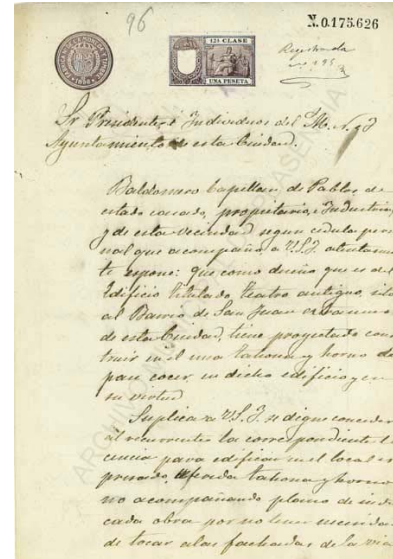 N.0.175.626
96
12ª CLASE
UNA PESETA
Registrada
Sr Presidente é Individuos del M. N. y I
Ayuntamiento de esta Ciudad.
Baldomero Capellan, de Pablos, de
estado casado, propietario, é Industrial
y de esta vecindad segun cedula perso
nal que acompaña, a V.S.I. atentamen
te espone: que como dueño que es del
Edificio titulado, teatro antiguo, sito
al Barrio de San Juan extramuros
de esta Ciudad, tiene proyectado cons
truir en el una tahona y horno de
pan cocer en dicho edificio y en
su virtud
Suplica a V.S.I. se digne conceder
al recurrente la correspondiente li
cencia para edificar en el local es
presado, referida tahona y horno
no acompañando plano de indi
cada obra por no tener necesidad
de tocar a las fachadas de la via
ARCHIVO MUNICIPAL PLASENCIA